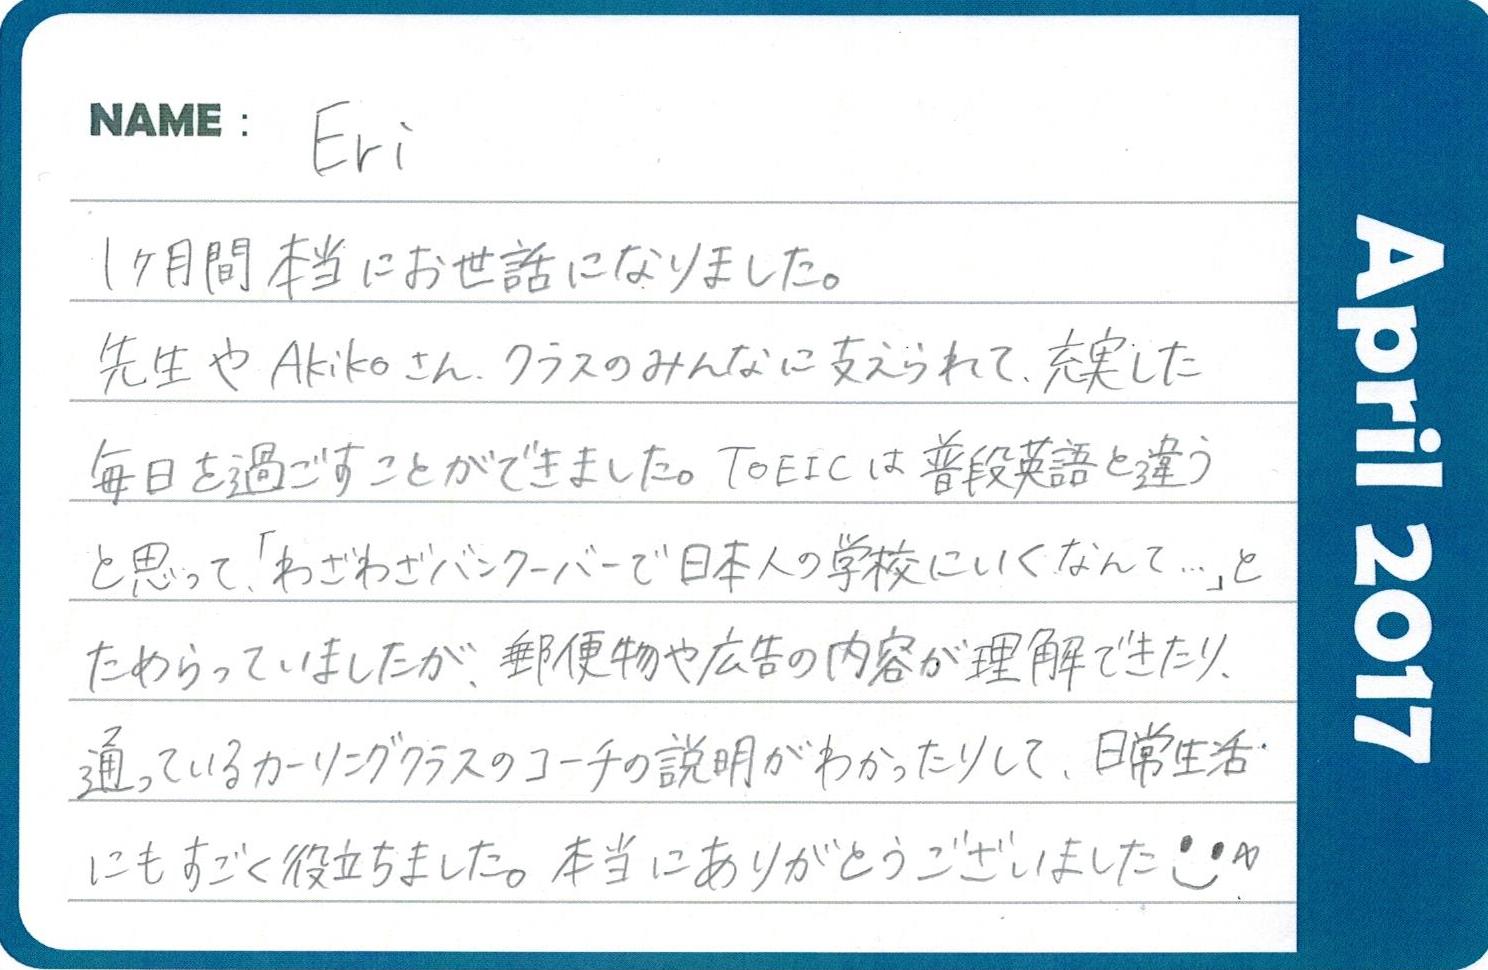 NAME : Eri
1ヶ月間本当にお世話になりました。
先生やAkikoさん、クラスのみんなに支えられて、充実した
毎日を過ごすことができました。TOEICは普段英語と違う
と思って、「わざわざバンクーバーで日本人の学校にいくなんて…」と
ためらっていましたが、郵便物や広告の内容が理解できたり、
通っているカーリングクラスのコーチの説明がわかったりして、日常生活
にもすごく役立ちました。本当にありがとうございました
April 2017